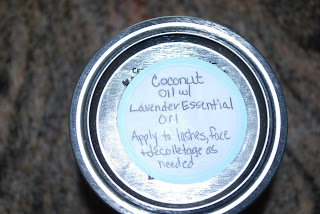 Coconut
Oil w/
Lavender Essential
Oil
Apply to lashes, face
+ decolletage as
needed